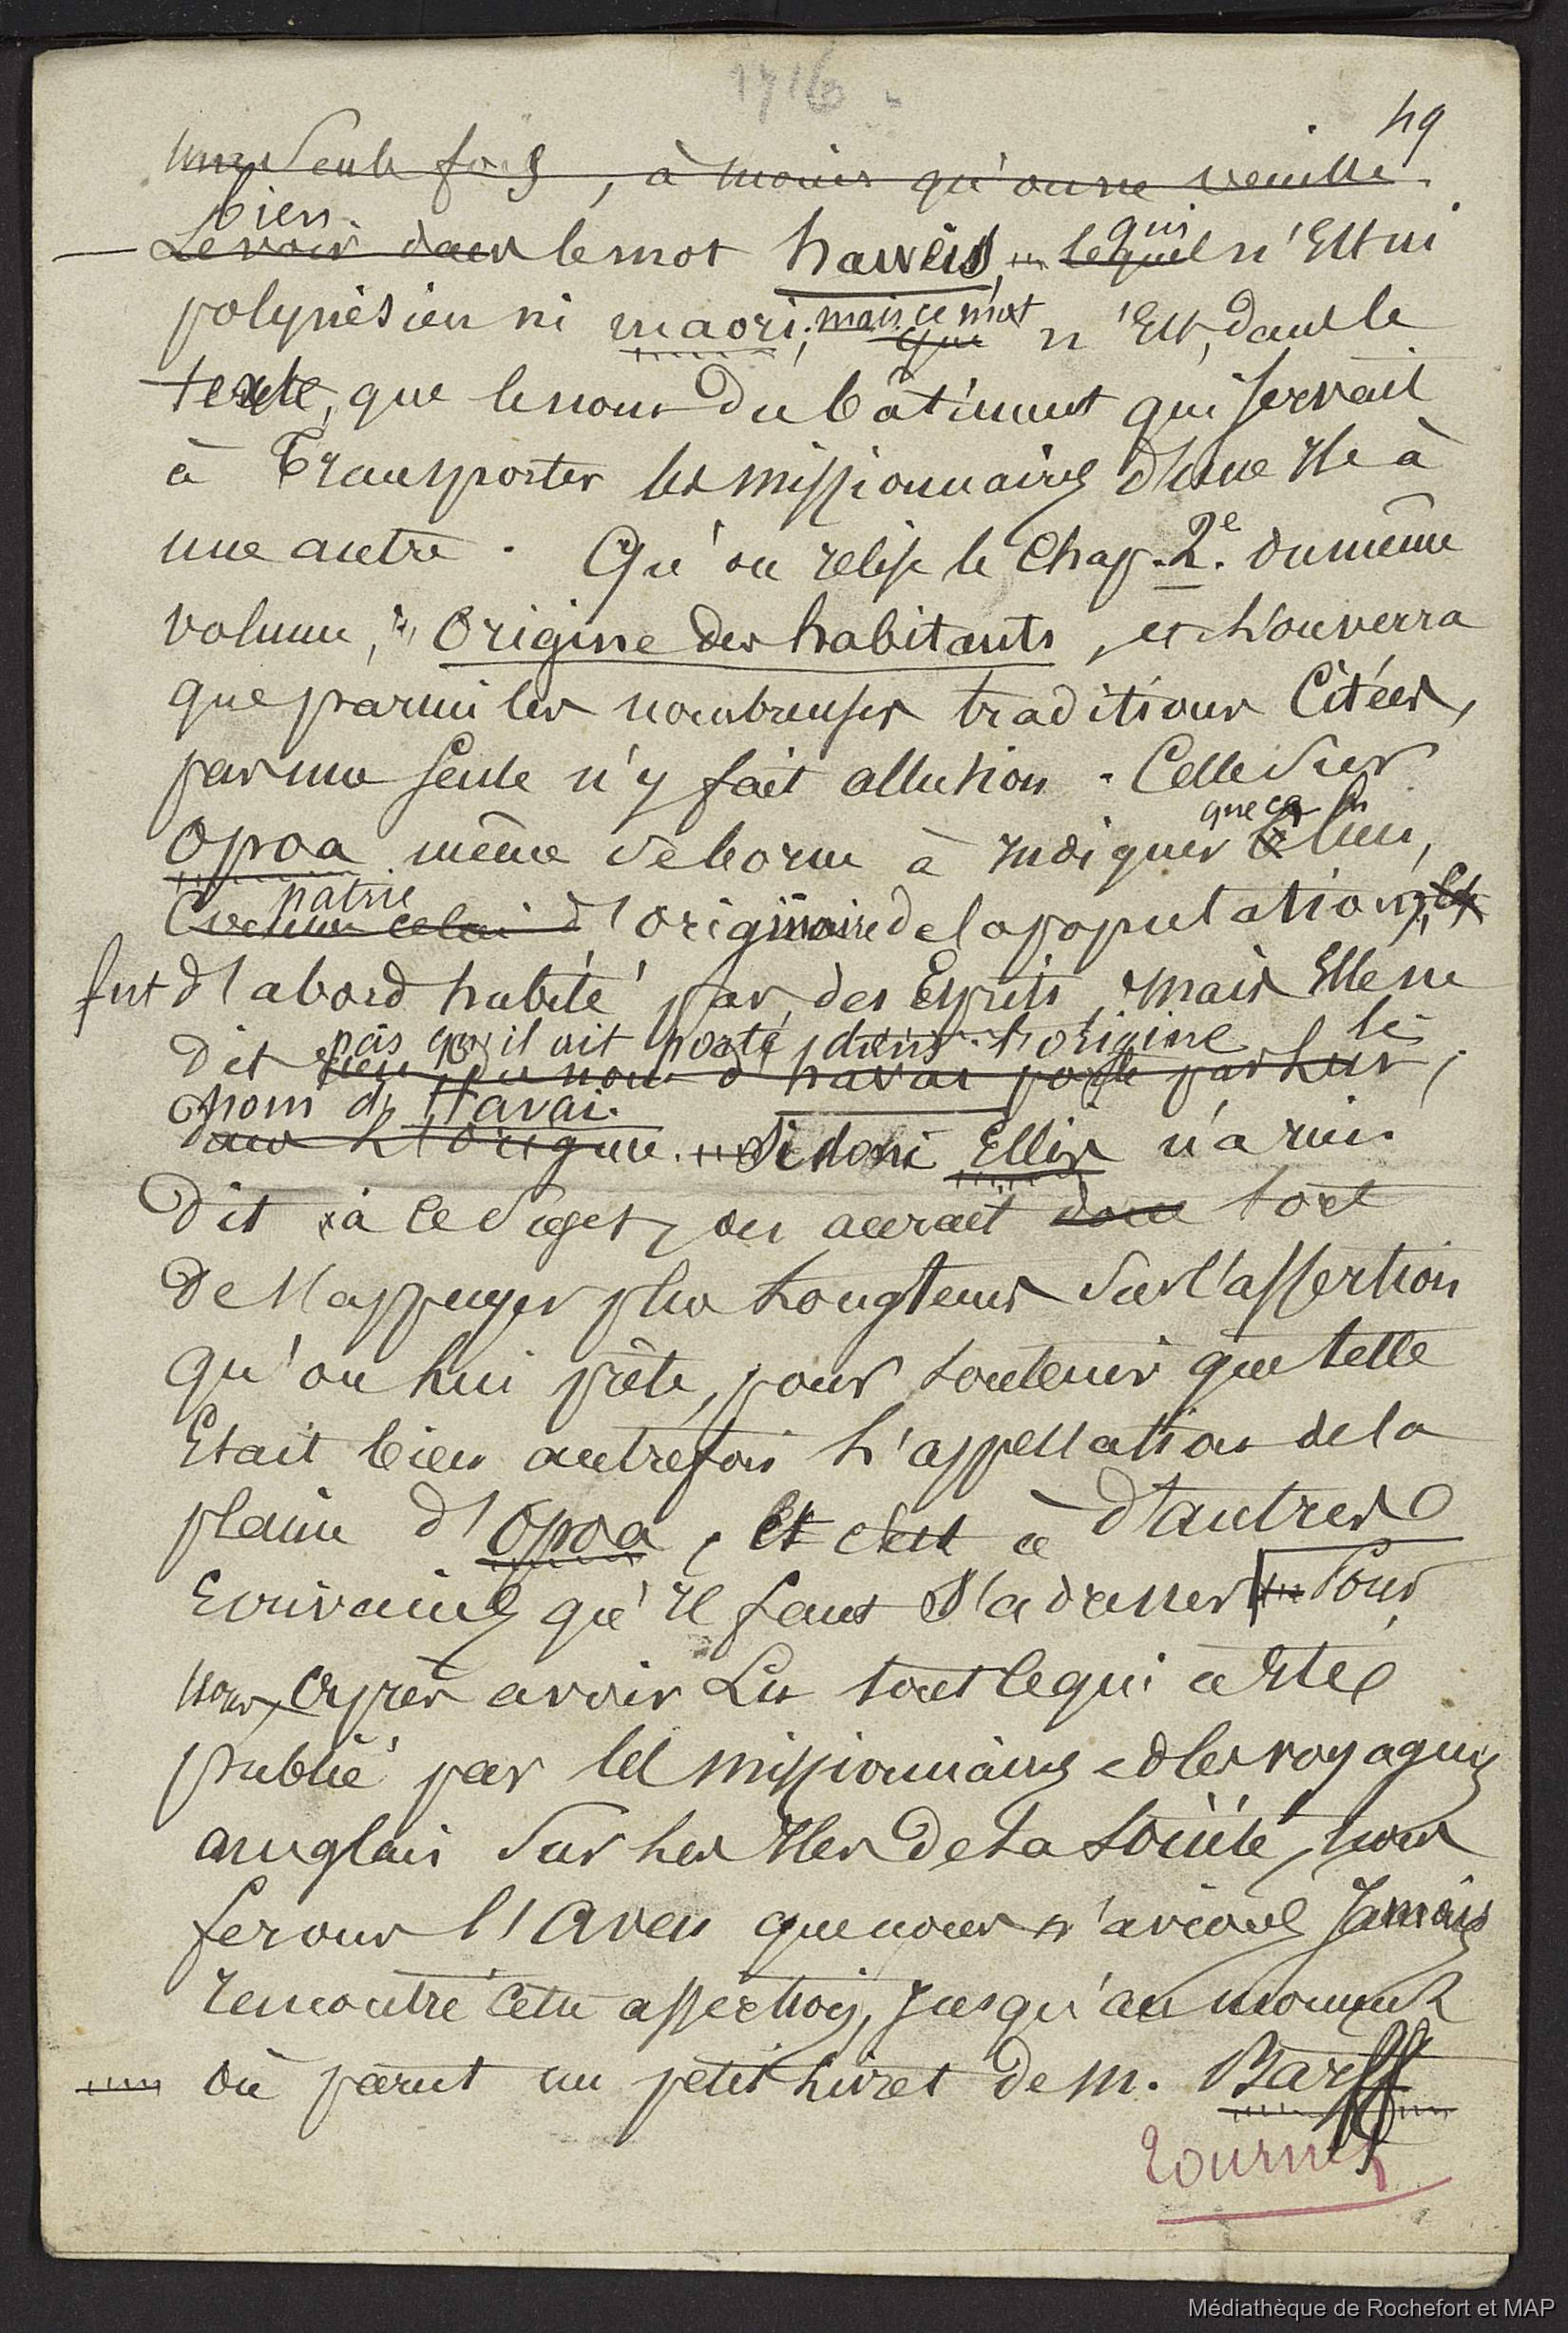 1716
49
une seule fois, à moins qu'on ne veuille
bien qui
le voir dans le mot haweis, lequel n'est ni
polynésien ni maori; mais ce mot que n'est, dans le
texte, que le nom du bâtiment qui servait
à transporter les missionnaires d'une île à
une autre. Qu'on relise le Chap. 2e. du même
volume, Origine des habitants, et l'on verra
que parmi les nombreuses traditions citées,
pas une seule n'y fait allusion. Celle sur
que ce
Opoa même se borne à indiquer lieu,
patrie
d'originaire de la population, et
fut d'abord habité par des Esprits, mais Elle ne
pas qu'il ait porté, dans l'origine le
dit rien du nom d'havai porté par lui,
nom de Havai.
dans l'origine. Si donc Ellis n'a rien
dit à ce sujet, on aurait donc tort
de s'appuyer plus longtems sur l'assertion
qu'on lui prête, pour soutenir que telle
Etait bien autrefois l'appellation de la
plaine d'Opoa, Et c'est à d'autres
Ecrivains qu'il faut s'adresser Pour
nous, après avoir lu tout ce qui a été
publié par les missionnaires et les voyageurs
anglais sur les Iles de la Société, nous
ferons l'aveu que nous n'avions Jamais
rencontré cette assertion, Jusqu'au moment
où parut un petit livret de M. Barff
tournez
Médiathèque de Rochefort et MAP